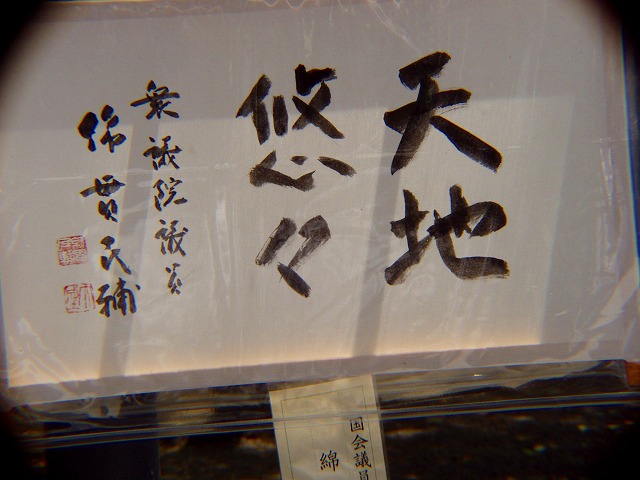 天地
悠々
衆議院議員
綿貫民輔
国会議員
綿